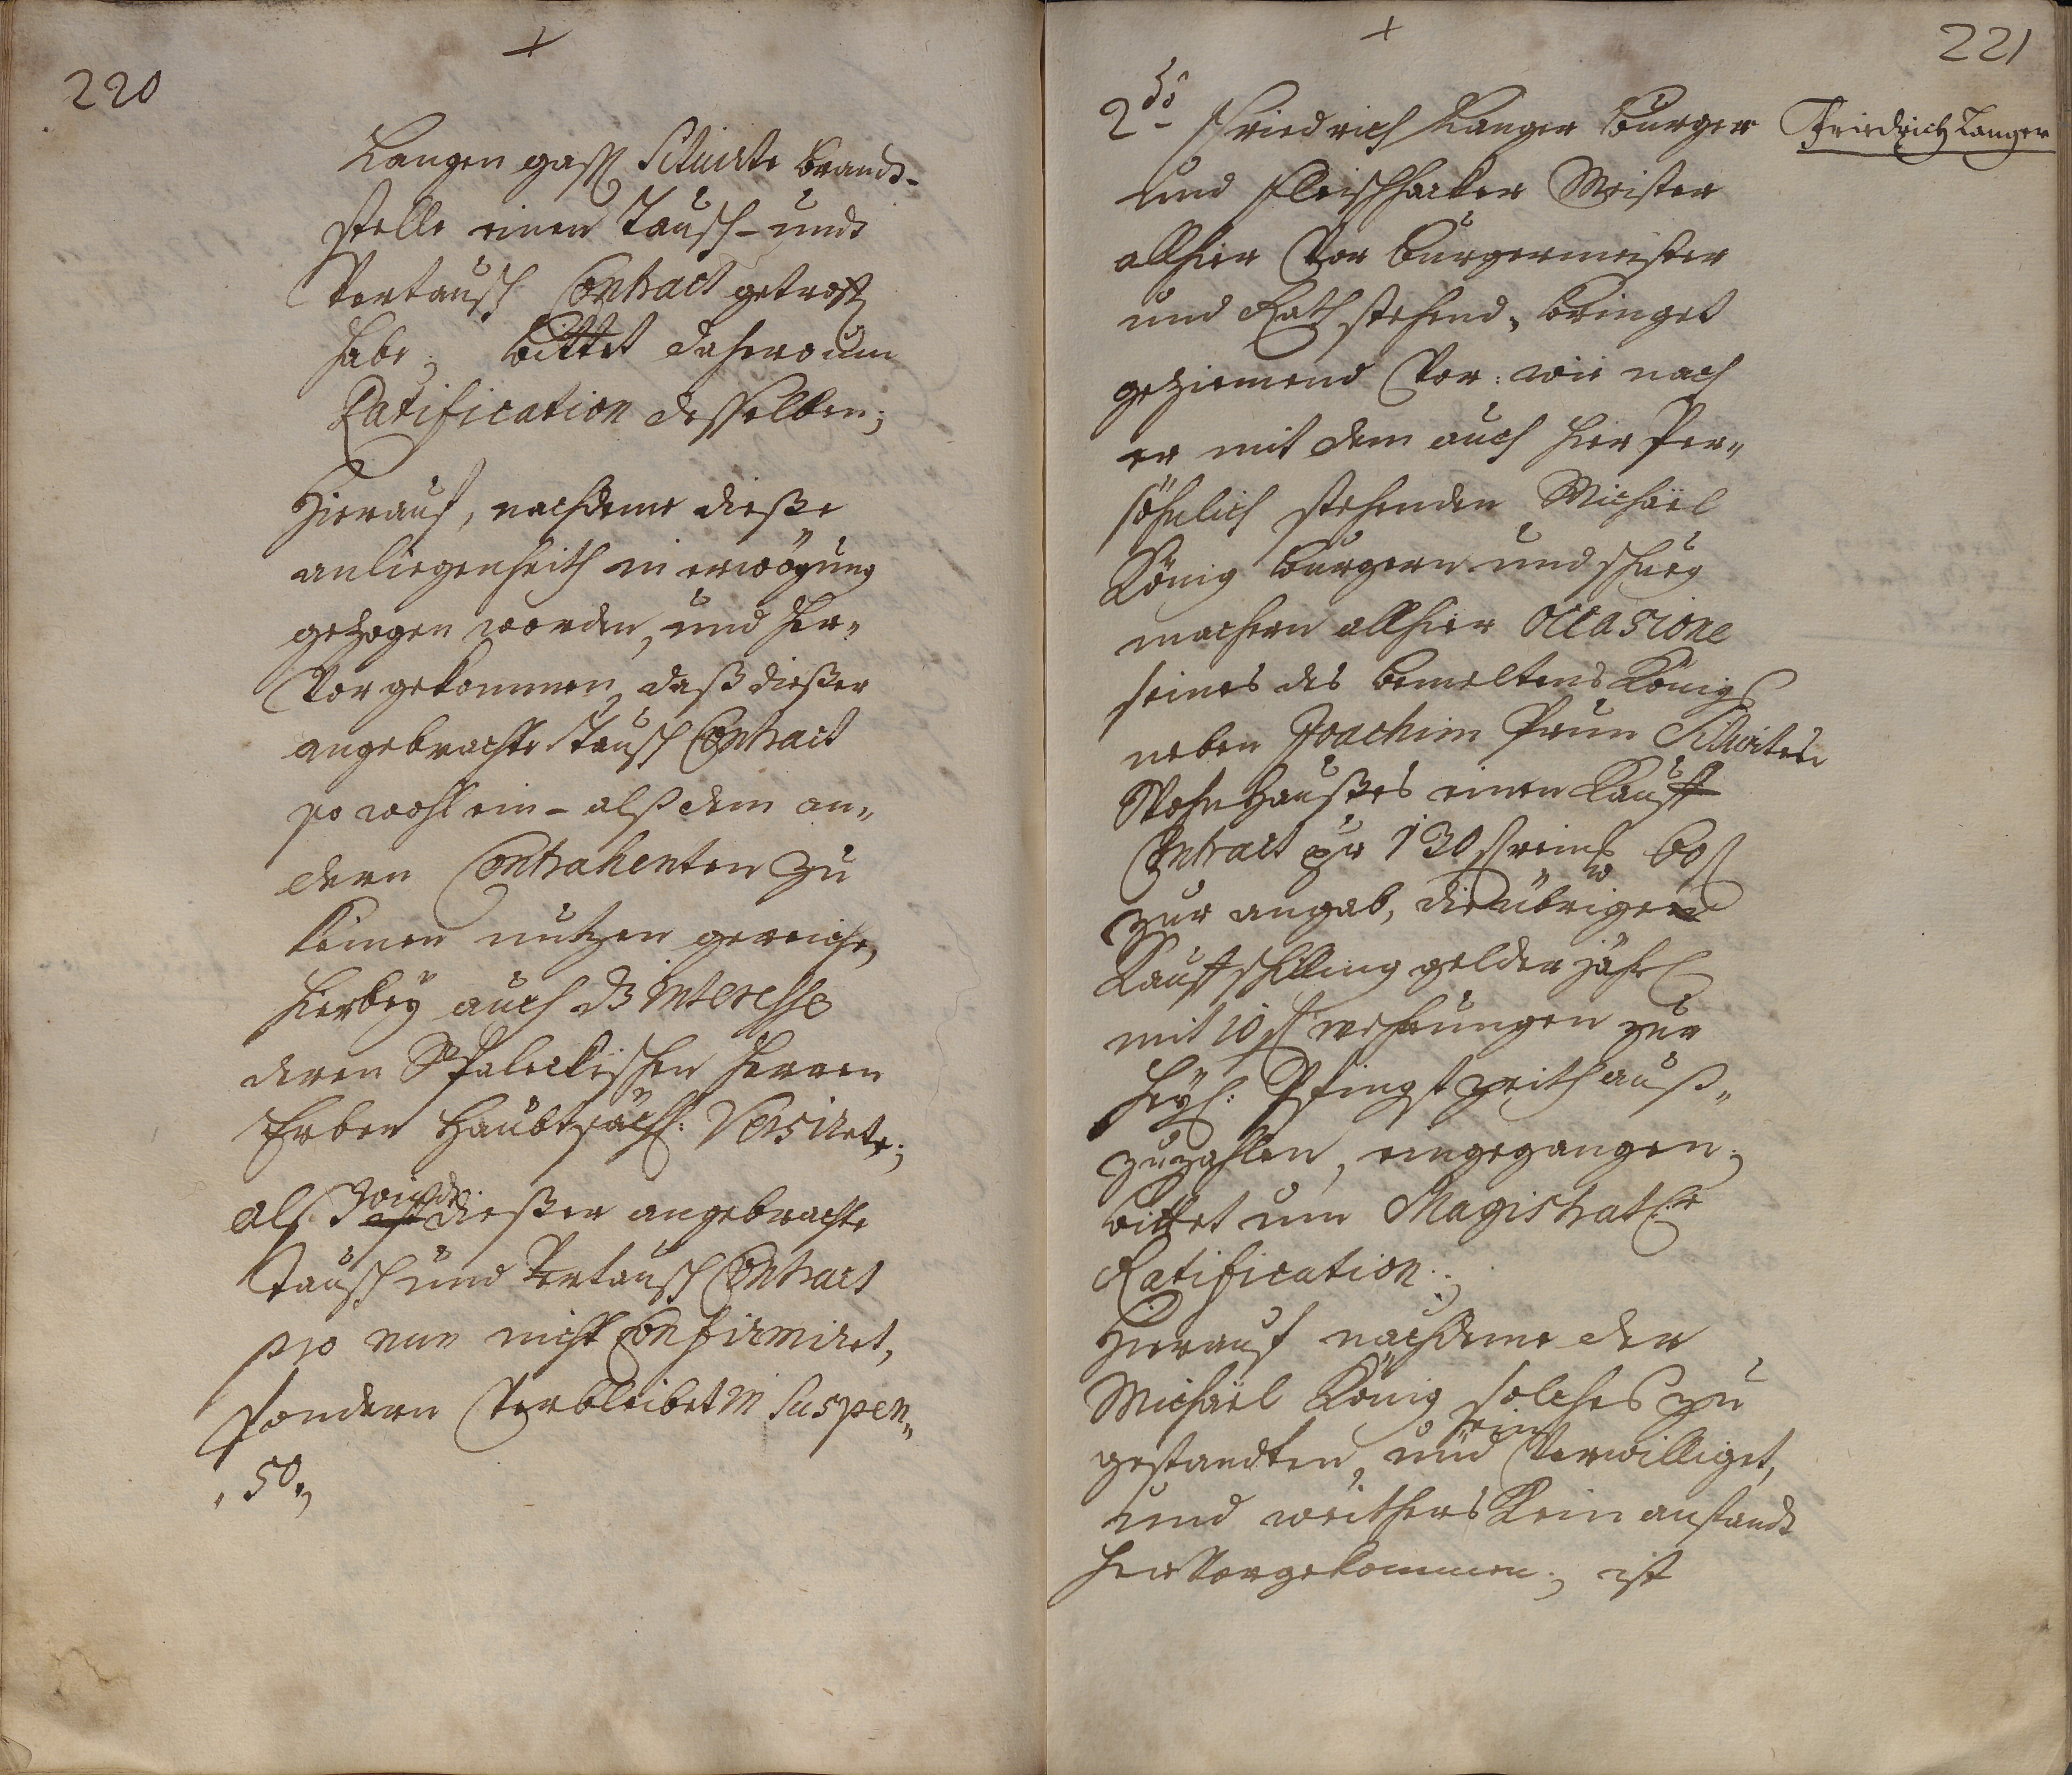 220
Langen gass Situirte brandt-
stelle einen Tausch- undt
Vertausch Contract getroffen
habe; bittet dahero um
Ratification desselben;
Hierauf, nachdeme dieße
anliegenheith in erwögung
gezogen worden, und her„
Vor gekommen, daß dießer
angebrachte Tausch Contract
so wohl ein- alß dem an„
dern Contrahenten zu
keinen nutzen gereiche,
hierbey auch dz interesse
deren Herren
Erben haubtsächl: Versirete;
alß wirdt dießer angebrachte
Tausch und Vertausch Contract
pro nun nicht Confirmiret,
sondern Verbleibet in Suspen„
„so„
221
2do Friedrich Langer burger
Friedrich Langer
und fleischhacker Meister
allhier Vor burgermeister
und Rath stehend, bringet
geziemend Vor: wie nach
er mit dem auch hier Per„
söhnlich stehenden Michaël
König burgern und schueg
machern allhier occasione
seines des bemeltens Königs
neben Joachim Situirten
Wohnhaußes einen Kauff
Contract pr 130 f
zur angab, die übrigen
Kauffschilling gelder jährl
mit 10 f wehrungen zur
heyl: Pfingst zeith auß„
zuzahlen, eingegangen;
bittet um Magistratl:e
Ratification.;
Hierauf nachdeme der
Michaël König solches zu
gestandten, und ein Verwilliget,
und weithers kein anstandt
herVorgekommen; ist